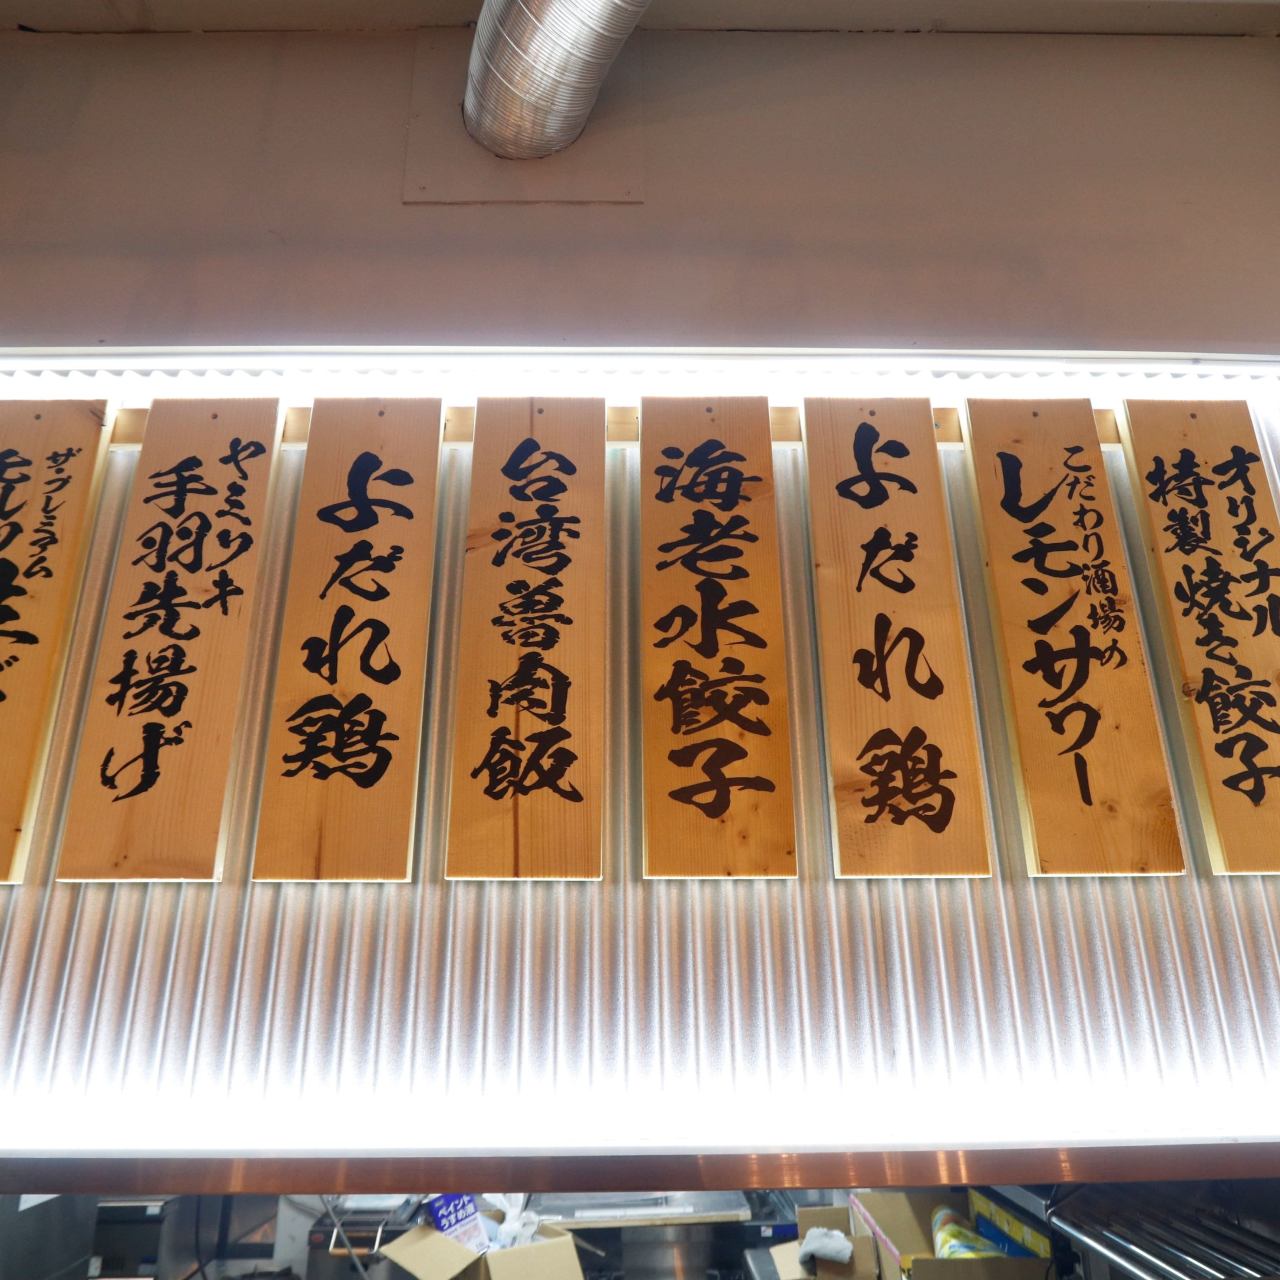 オリジナル
特製焼き餃子
こだわり酒場の
レモンサワー
よだれ鶏
海老水餃子
台湾魯肉飯
よだれ鶏
ヤミツキ
手羽先揚げ
ザ・プレミアム
ペイント
うすめ液